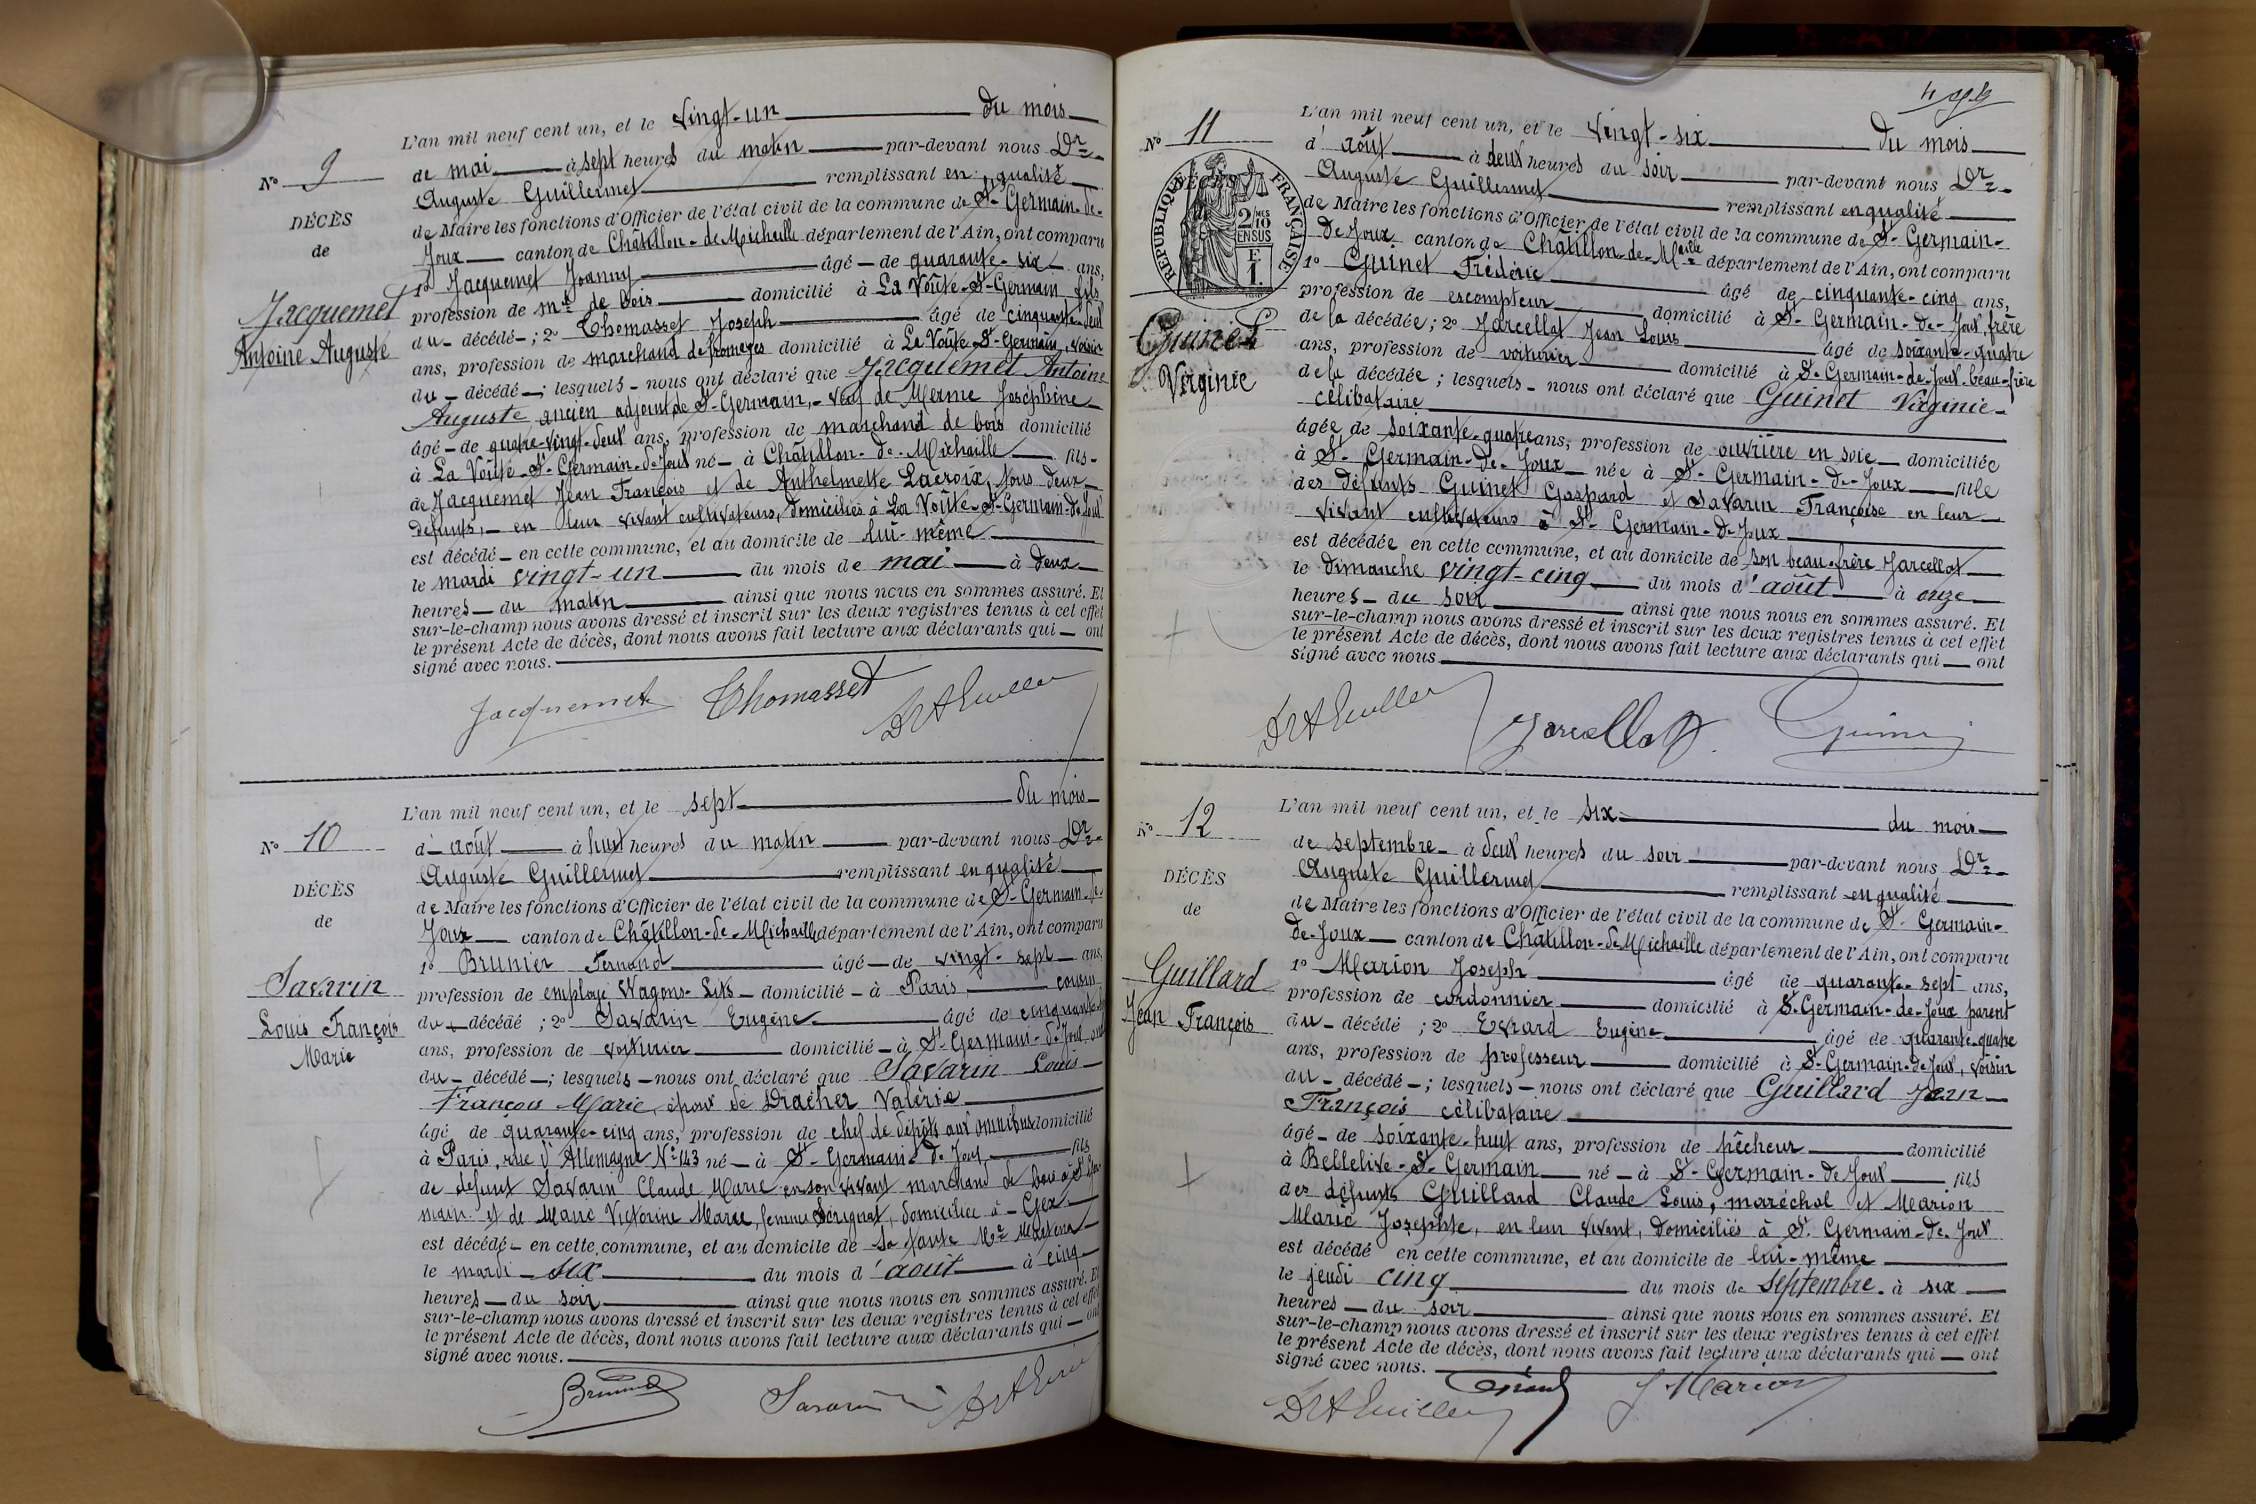 N° 9
DÉCÈS
de
Jacquemet
Antoine Auguste
L'an mil neuf cent un, et le vingt-un du mois
de mai à sept heures du matin par-devant nous Dr
Auguste Guillermet remplissant en qualité
de Maire les fonctions d'Officier de l'état civil de la commune de St-Germain-de-
Joux canton de Châtillon-de-Michaille département de l'Ain, ont comparu
1° Jacquemet Joanny âgé de quarante-six ans,
profession de md de bois domicilié à La Voûte-St-Germain fils
du décédé; 2° Thomasset Joseph âgé de cinquante-deux
ans, profession de marchand de fromages domicilié à La Voûte-St-Germain, voisin
du décédé; lesquels nous ont déclaré que Jacquemet Antoine
Auguste ancien adjoint de St-Germain, veuf de Merme Joséphine
âgé de quatre-vingt-deux ans, profession de marchand de bois domicilié
à La Voûte-St-Germain-de-Joux né à Châtillon-de-Michaille fils
de Jacquemet Jean François et de Anthelmette Lacroix, tous deux
défunts, en leur vivant cultivateurs, domiciliés à La Voûte-St-Germain-de-Joux
est décédé en cette commune, et au domicile de lui-même
le mardi vingt-un du mois de mai à deux
heures du matin ainsi que nous nous en sommes assuré. Et
sur-le-champ nous avons dressé et inscrit sur les deux registres tenus à cet effet
le présent Acte de décès, dont nous avons fait lecture aux déclarants qui ont
signé avec nous.
Jacquemet Thomasset Dr A Guiller
N° 10
DÉCÈS
de
Savarin
Louis François
Marie
L'an mil neuf cent un, et le sept du mois
d'août à huit heures du matin par-devant nous Dr
Auguste Guillermet remplissant en qualité
de Maire les fonctions d'Officier de l'état civil de la commune de St-Germain-de-
Joux canton de Châtillon-de-Michaille département de l'Ain, ont comparu
1° Brunier Fernand âgé de vingt-sept ans,
profession de employé Wagons-Lits domicilié à Paris cousin
du décédé; 2° Savarin Eugène âgé de cinquante
ans, profession de voiturier domicilié à St-Germain-de-Joux,
du décédé; lesquels nous ont déclaré que Savarin Louis
François Marie, époux de Dracher Valérie
âgé de quarante-cinq ans, profession de chef de dépôts aux omnibus domicilié
à Paris, rue d'Allemagne N° 143 né à St-Germain-de-Joux fils
de défunt Savarin Claude Marie en son vivant marchand de bois à St Ger-
main et de Marie Victorine femme domiciliée à Gex
est décédé en cette commune, et au domicile de sa tante
le mardi six du mois d'août à cinq
heures du soir ainsi que nous nous en sommes assuré. Et
sur-le-champ nous avons dressé et inscrit sur les deux registres tenus à cet effet
le présent Acte de décès, dont nous avons fait lecture aux déclarants qui ont
signé avec nous.
Savarin Dr A Guiller
N° 11
RÉPUBLIQUE FRANÇAISE
2/10 EN SUS
E
1
Guinet
Virginie
L'an mil neuf cent un, et le vingt-six du mois
d'août à deux heures du soir par-devant nous Dr
Auguste Guillermet remplissant en qualité
de Maire les fonctions d'Officier de l'état civil de la commune de St-Germain-
de-Joux canton de Châtillon-de-Mlle département de l'Ain, ont comparu
1° Guinet Frédéric âgé de cinquante-cinq ans,
profession de escompteur domicilié à St-Germain-de-Joux, frère
de la décédée; 2° Jarcellat Jean Louis âgé de soixante-quatre
ans, profession de voiturier domicilié à St-Germain-de-Joux, beau-frère
de la décédée; lesquels nous ont déclaré que Guinet Virginie
célibataire
âgée de soixante-quatre ans, profession de ouvrière en soie domiciliée
à St-Germain-de-Joux née à St-Germain-de-Joux fille
des défunts Guinet Gaspard et Savarin Françoise en leur
vivant cultivateurs à St-Germain-de-Joux
est décédée en cette commune, et au domicile de son beau-frère Jarcellat
le dimanche vingt-cinq du mois d'août à onze
heures du soir ainsi que nous nous en sommes assuré. Et
sur-le-champ nous avons dressé et inscrit sur les deux registres tenus à cet effet
le présent Acte de décès, dont nous avons fait lecture aux déclarants qui ont
signé avec nous
Dr A Guiller Jarcellat Guinet
N° 12
DÉCÈS
de
Guillard
Jean François
L'an mil neuf cent un, et le six du mois
de septembre à deux heures du soir par-devant nous Dr
Auguste Guillermet remplissant en qualité
de Maire les fonctions d'Officier de l'état civil de la commune de St-Germain-
de-Joux canton de Châtillon-de-Michaille département de l'Ain, ont comparu
1° Marion Joseph âgé de quarante-sept ans,
profession de cordonnier domicilié à St-Germain-de-Joux parent
du décédé; 2° Evrard Eugène âgé de quarante-quatre
ans, profession de professeur domicilié à St-Germain-de-Joux, voisin
du décédé; lesquels nous ont déclaré que Guillard Jean
François célibataire
âgé de soixante-huit ans, profession de pêcheur domicilié
à Bellelive-St-Germain né à St-Germain-de-Joux fils
des défunts Guillard Claude Louis, maréchal et Marion
Marie Josephte, en leur vivant, domiciliés à St-Germain-de-Joux
est décédé en cette commune, et au domicile de lui-même
le jeudi cinq du mois de septembre à six
heures du soir ainsi que nous nous en sommes assuré. Et
sur-le-champ nous avons dressé et inscrit sur les deux registres tenus à cet effet
le présent Acte de décès, dont nous avons fait lecture aux déclarants qui ont
signé avec nous.
Dr A Guiller Evrard J Marion